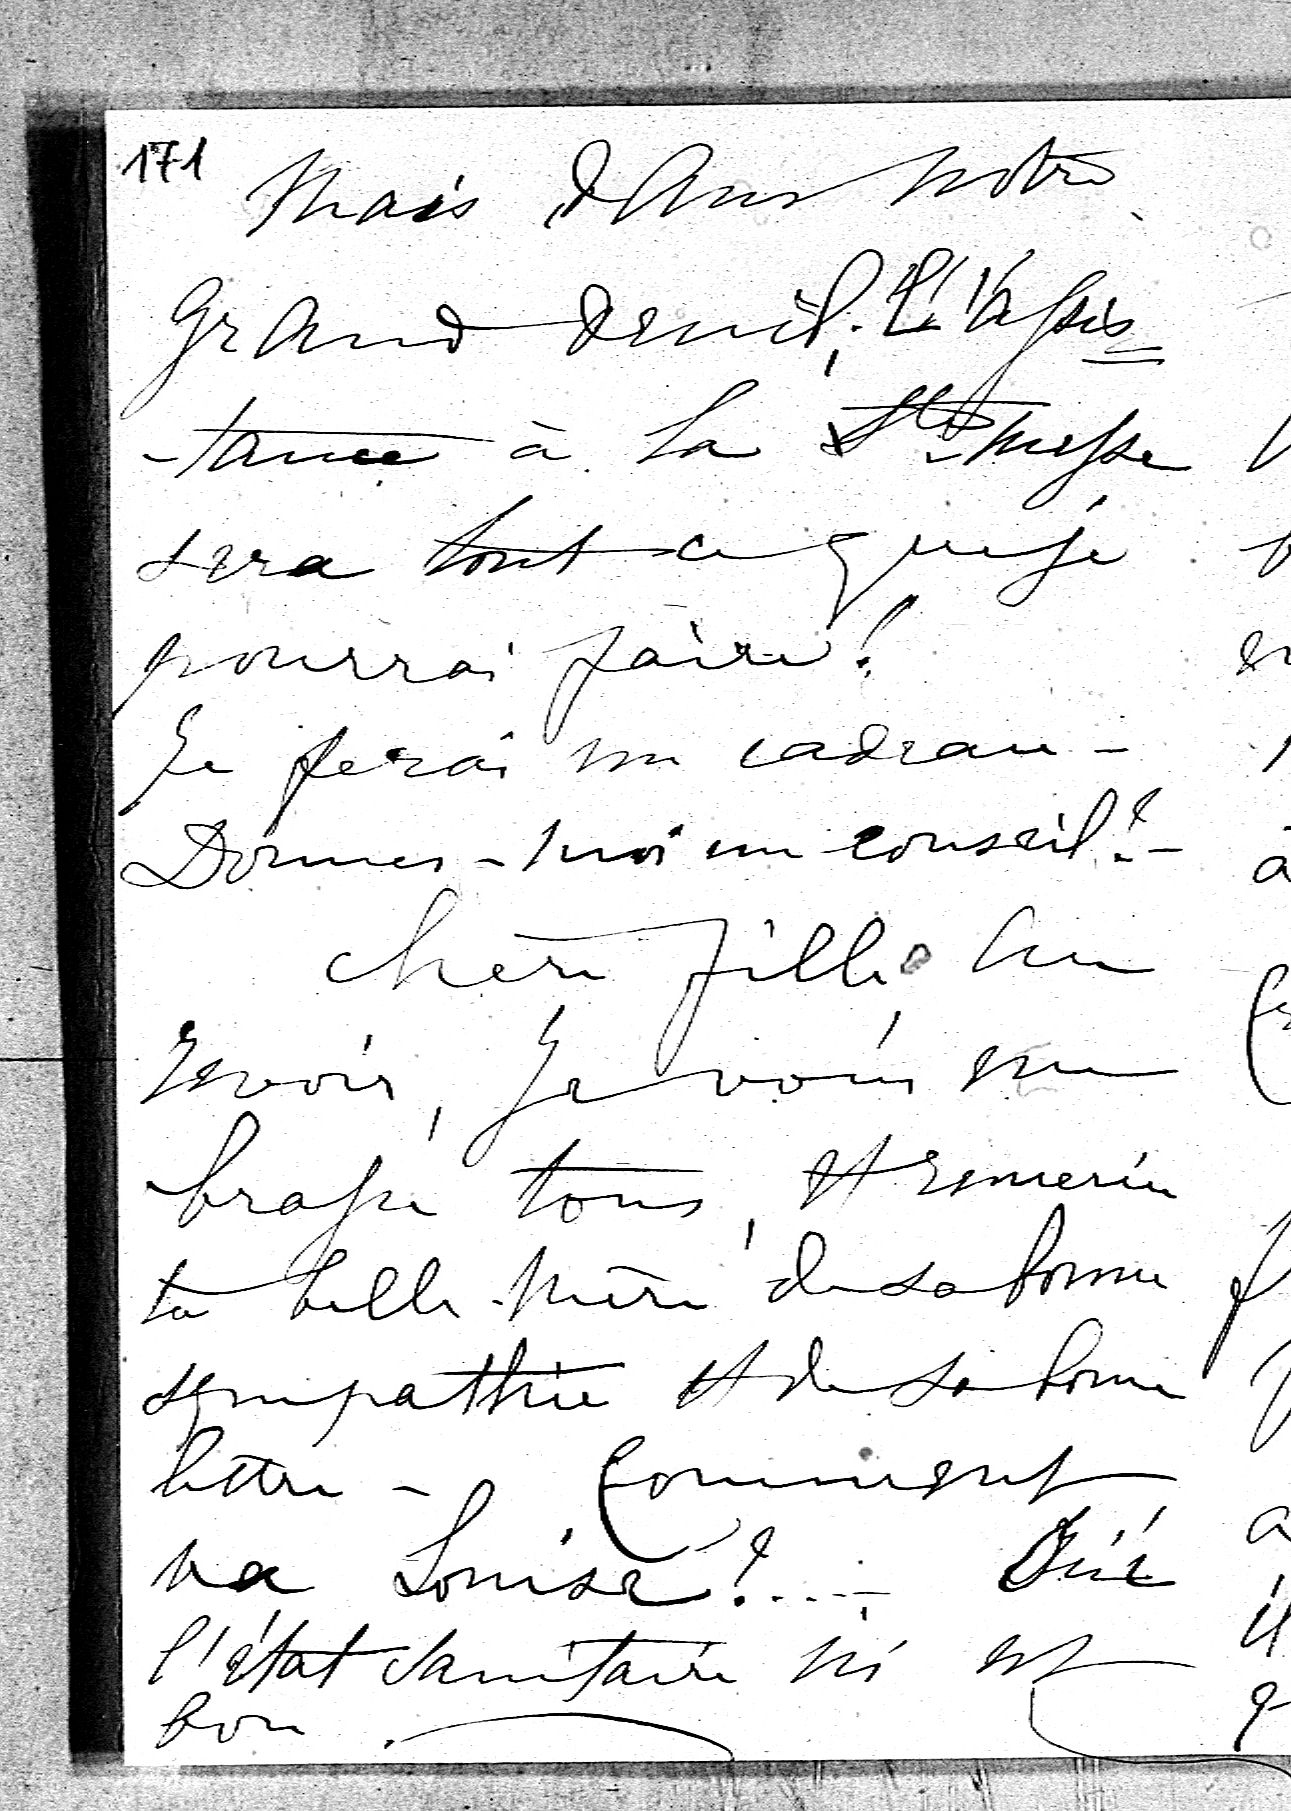 171
Mais dans notre
grand deuil, l'assis=
-tance à la Ste messe
sera tout ce que je
pourrai faire!
Je ferai un cadeau -
Donnes-moi un conseil? -
chère fille au
revoir, Je vous em
brasse tous, et remercie
ta belle-mère de sa bonne
sympathie et de sa bonne
lettre - Comment
va Louise?...-
l'état sanitaire ici est
bon.